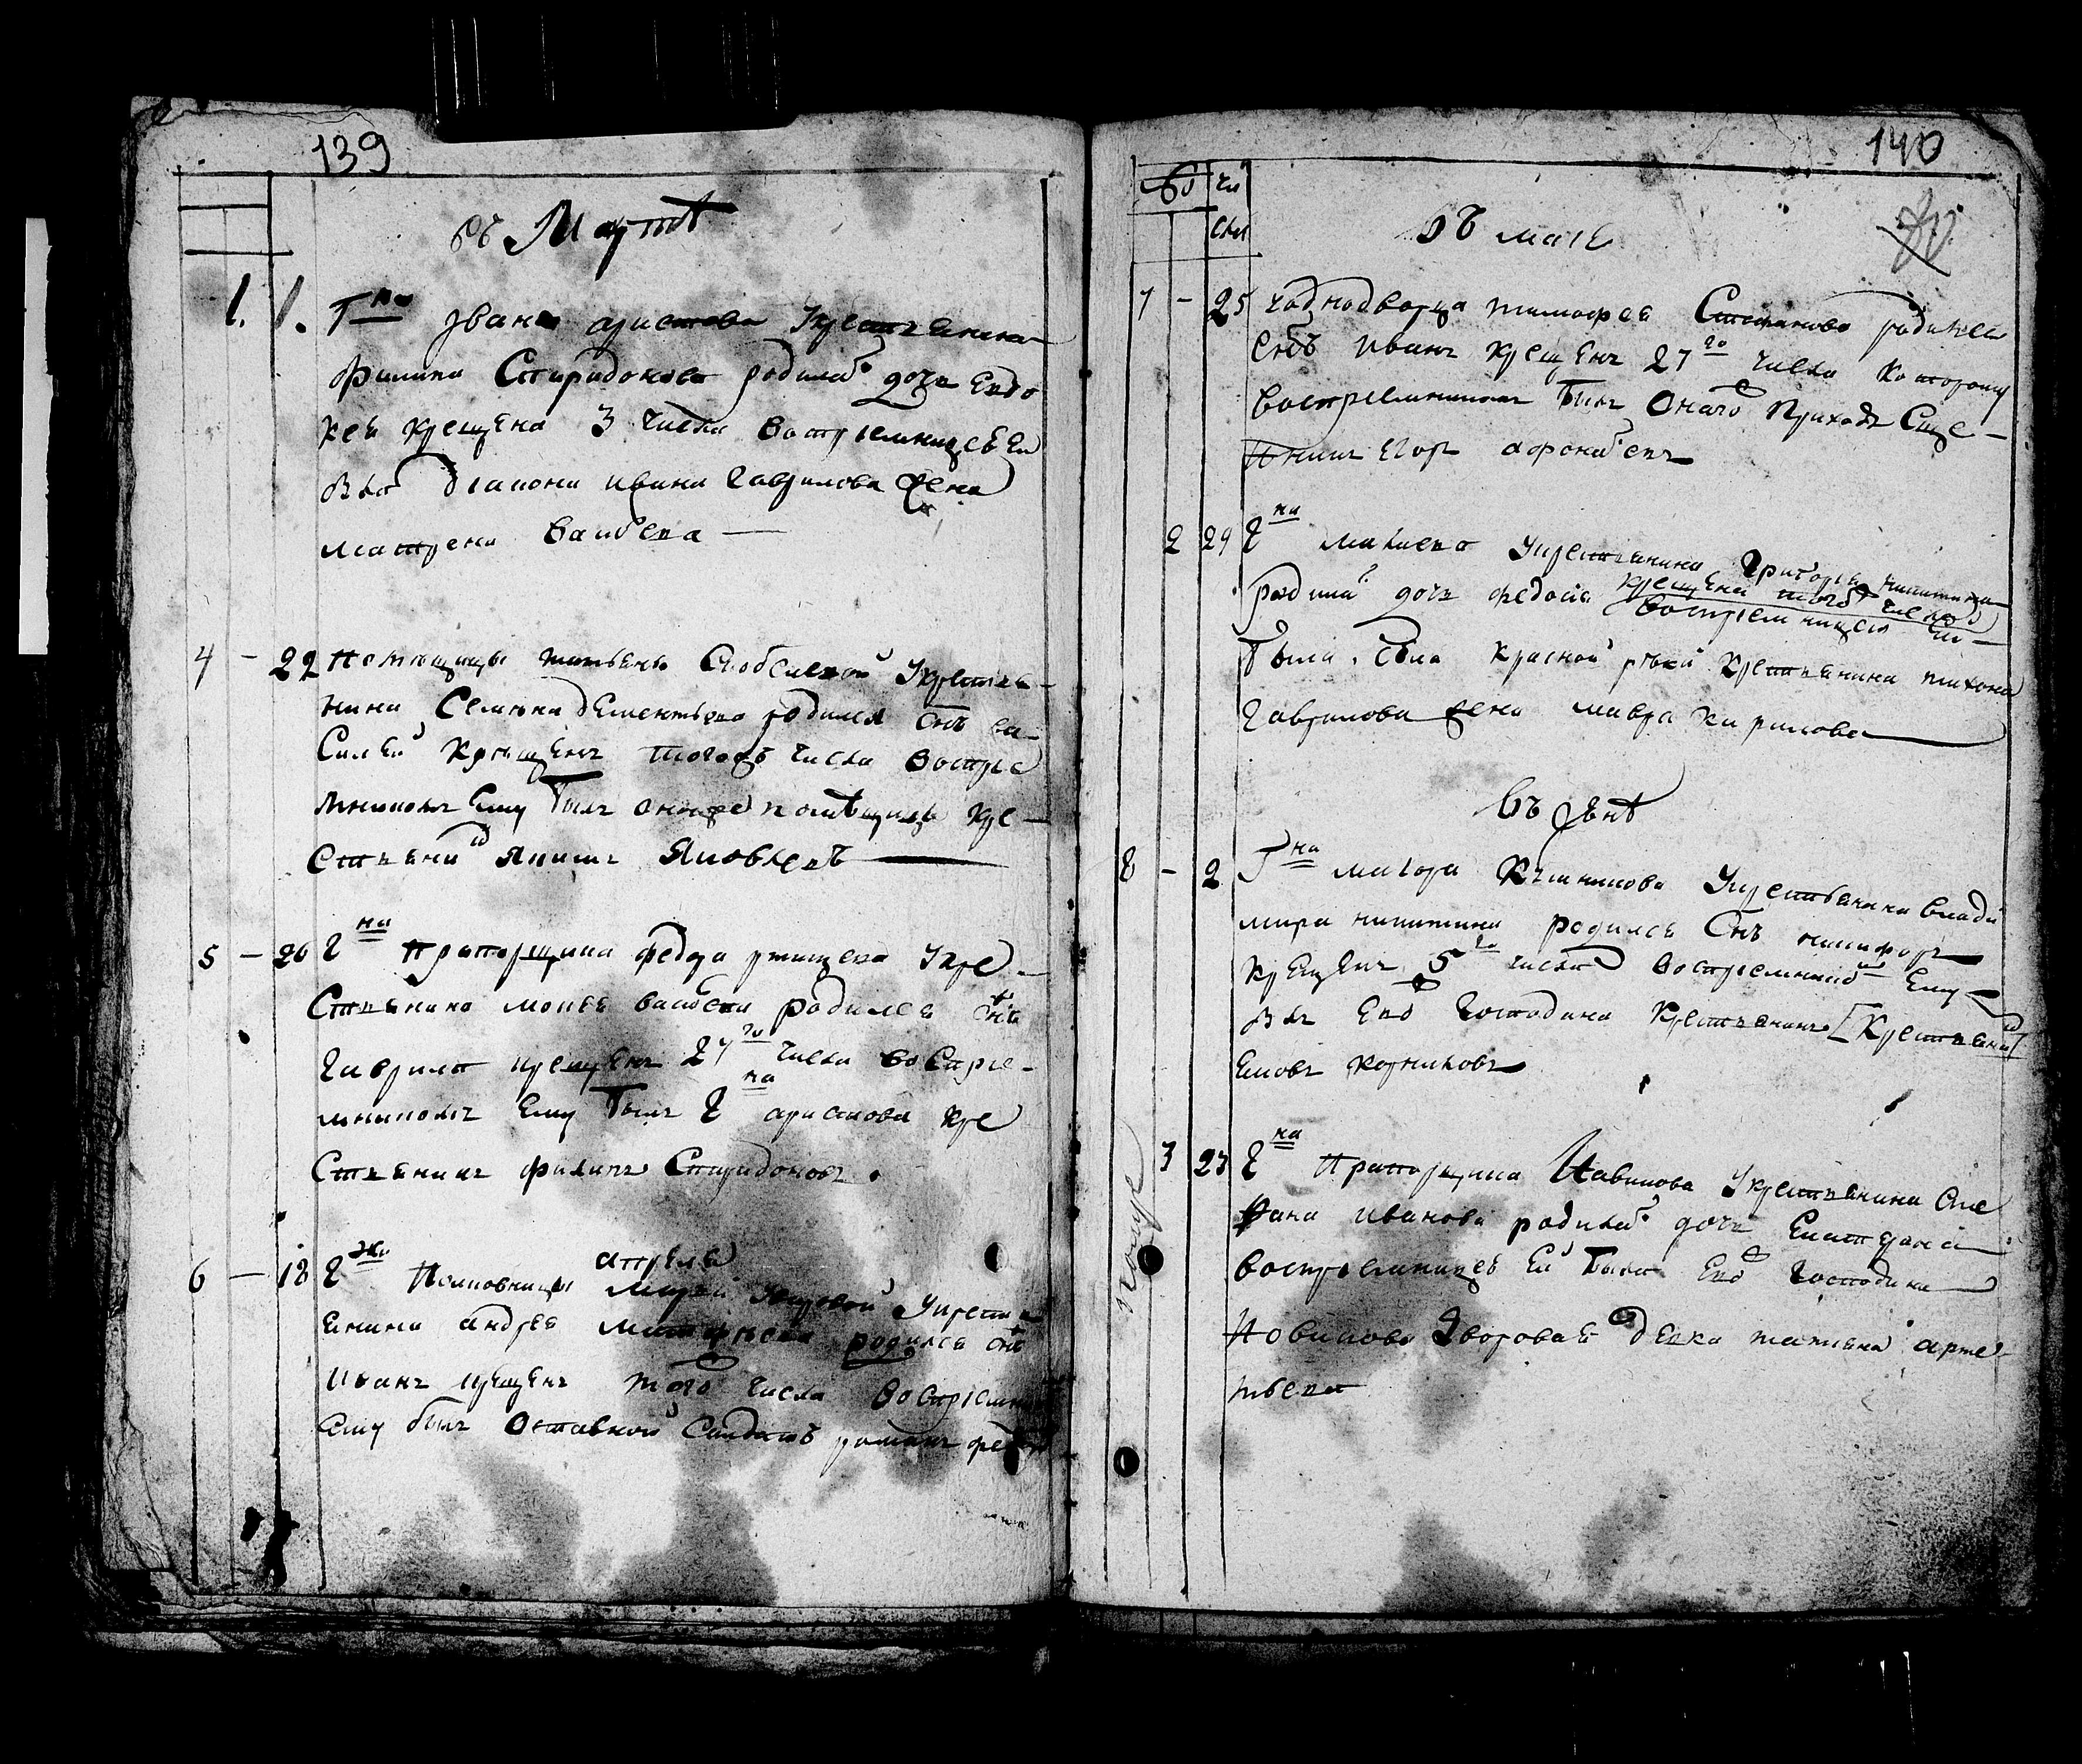 139
въ Мартѣ
1. 1. Гна Ивана аристова Укрестьянина
филипа Спиридонова родилас дочь Евдо
кея крещена 3 числа востриемницей ей
была диакона ивана гаврилова жена
матрена васильева —
4 - 22 помещицы татьяны Укрестья-
нина Семиона дементьева родился снъ ва-
Силей крещенъ тогожъ числа востприе
мникомъ Ему былъ оной помѣщицы кре-
Стьянин Яковлевъ
5 - 26 Гна Прапорщика федора ртищева Укре-
Стьянина мосея васильева родился снъ
гаврила крещенъ 27го числа воСприе-
мникомъ Ему былъ Гна аристова кре
Стьянинъ филипъ Спиридоновъ.
апреля
6 - 18 Гжи Полковницы Укрестья
янина андрея родился снъ
Иванъ крещенъ того числа Восприемни
Ему былъ Отставной Салдатъ романъ
140
чи
сла
въ маie
7 - 25 Уоднодворца тимофея Степанова родился
Снъ иванъ крещенъ 27го числа которому
воспрiемникомъ былъ Оного Прихода Свяще-
нникъ Егоръ афонасьевъ
2 29 Гна Укрестьянина Григорья никитина
родилас дочь федосiя крещена того числа
воспрiемницей ей
была села красной реки крестьянина тихона
гаврилова жена мавра кирилова
въ Iюнѣ
8 - 2 Гна маiора Укрестьянина влади
мира никитина родился Снъ никифоръ
крещенъ 5го числа воспрiемникомъ Ему
былъ Ево Господина Крестьянинъ [Крестьянин]
3 23 Гна Прапорщика Новикова Укрестьянина Сте
фана Иванова родилас дочь
воспрiемницей ей была Ево Господина
Новикова Дворовая девка татьяна арте-
мьева